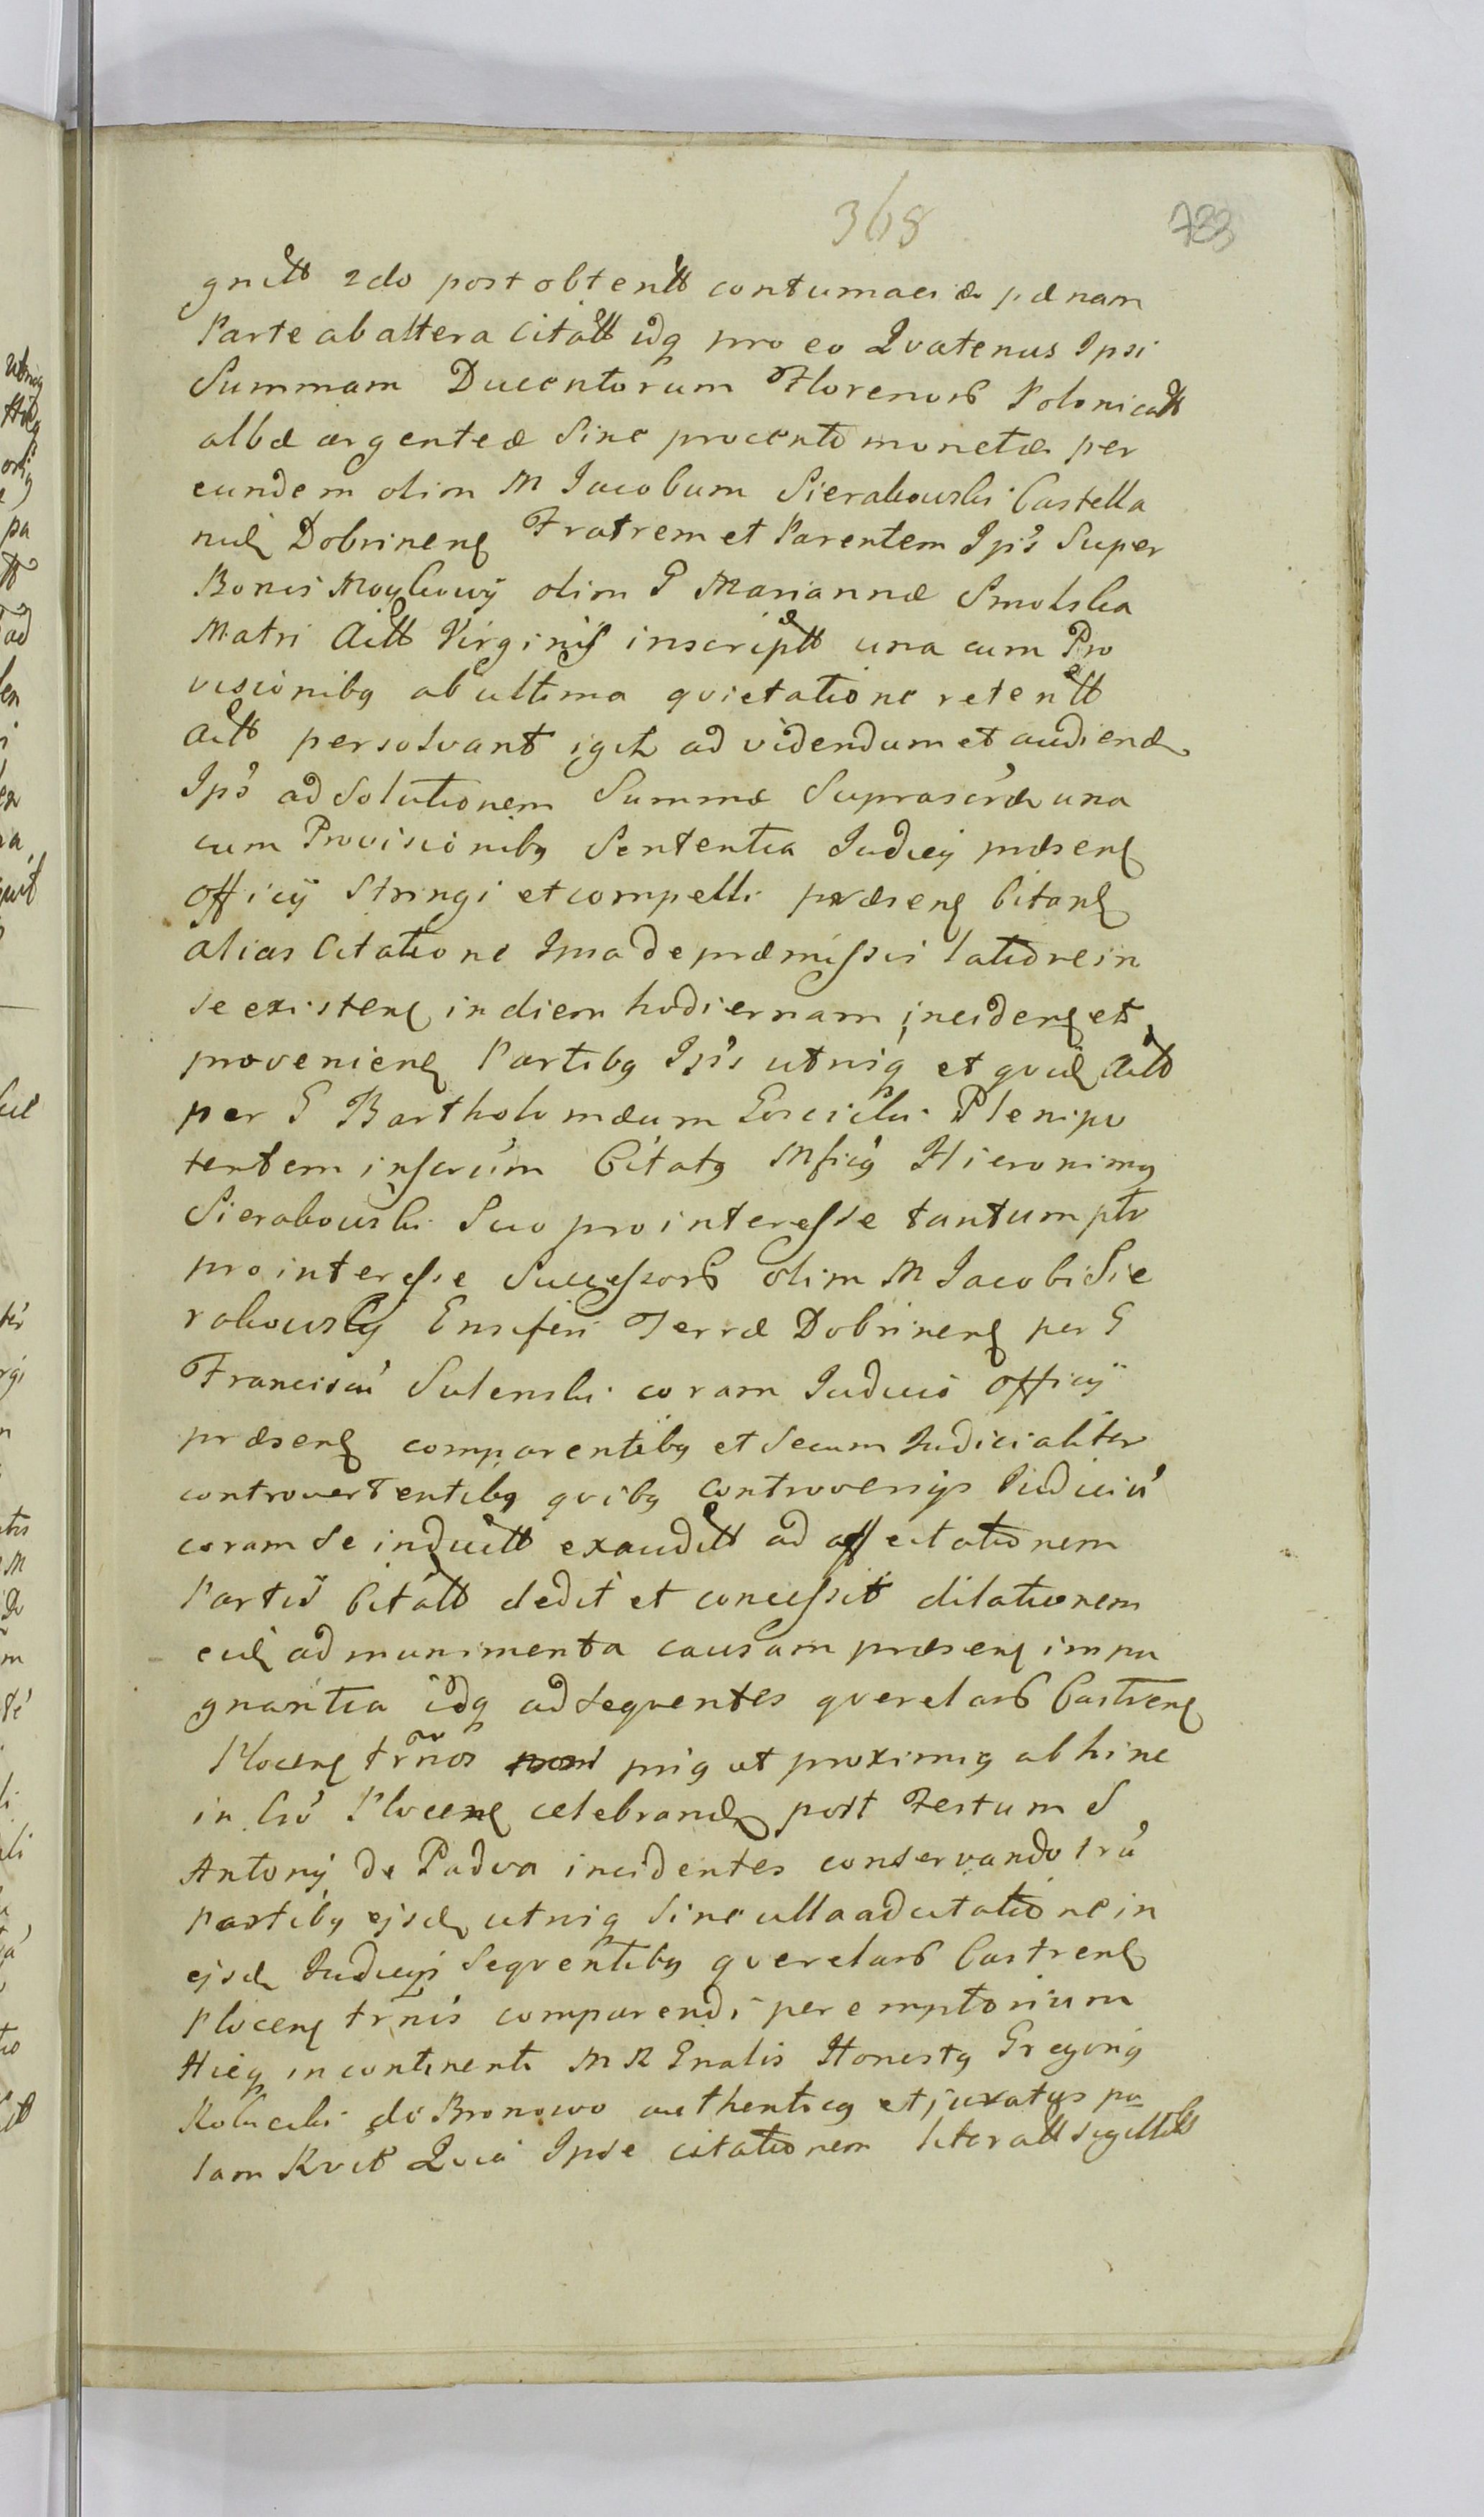 368 733
gnitt 2do post obtentt contumaciæ pænam
Parte ab altera Citatt idq pro eo Qvatenus Ipsi
Summam Ducentorum Florenorb Polonicatt
albæ argenteæ Sine procento monetæ per
eundem olim M Jacobum Sierakowski Castella
nuȩ Dobrinenȩ Fratrem et Parentem Ips's Super
Bonis olim G Mariannæ Smolska
Matri Actt Virginis inscriptt una cum Pro
visionibq ab ultima qvietatione retentt
Actt persolvant igitr ad videndum et audiend
Ips' ad Solutionem Summæ Suprascræ una
cum Provisionibq Sententia Judicij præsenȩ
officÿ Stringi et compelli præsenȩ Citanȩ
alias Citatione Ima de præmissis latiore in
se existenȩ in diem hodiernam incidenȩ et
provenienȩ Partibq Ips's utriq et qvidȩ Actt
per G Bartholomæum Plenipo
tentem inscrum Citatq Mficq Hieronimq
Sierakowski Suo pro interesse tantum ptr
pro interesse Successorb olim M Jacobi Sie
rakowskij Ensiferi Terræ Dobrinenȩ per G
Franciscu' Sulenski coram Judicio officÿ
præsenȩ comparentibq et Secum Judicialiter
controvertentibq qvibq controversijs Judiciu'
coram Se inductt exauditt ad affectationem
Partis Citatt dedit et concessit dilationem
eidȩ ad munimenta causam præsenȩ impu
gnantia idq ad Seqventes qverelarb Castrenȩ
Plocenȩ tr̃nos priq et proximiq ab hinc
in Cro' Plocenȩ celebrandȩ post Festum S
Antonÿ de Padva incidentes conservando tru'
partibq ejsdȩ utriq Sine ulla adcitatione in
ejsdȩ Judicijs Seqventibq qverelarb Castrenȩ
Plocenȩ trnis comparendi peremptorium
Hicq in continenti M R Gnalis Honestq Gregoriq
Kobucki de Bronowo authenticq et juratus pa
lam Rvit Qvia Ipse citationem literatt Sigillatt